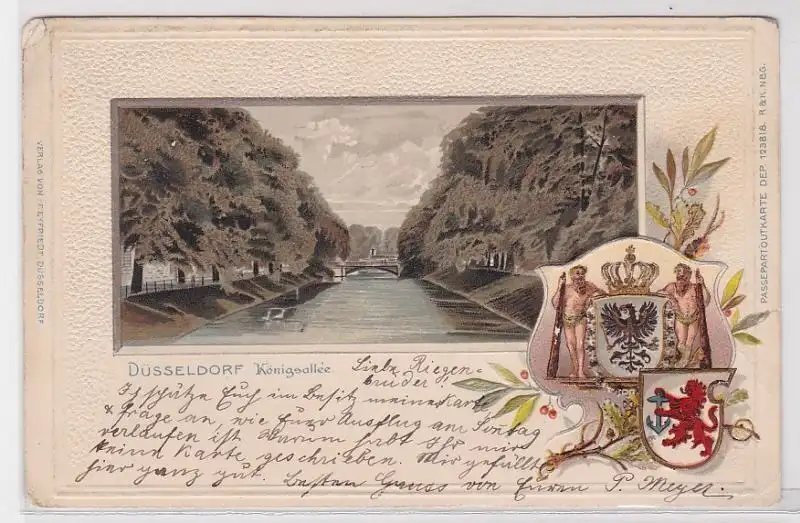 DÜSSELDORF Königsallée
Liebe Riegen-
brüder!
Ich schätze Euch im Besitz meiner Karte
& frage an, wie Euer Ausflug am Sontag
verlaufen ist Warum habt Ihr mir
keine Karte geschrieben. Mir gefällt
hier ganz gut. Besten Gruss von Euren P. Meyer.
VERLAG VON J. FEYFRIEDT, DÜSSELDORF
PASSEPARTOUTKARTE DEP. 123818. R & K. NBG.